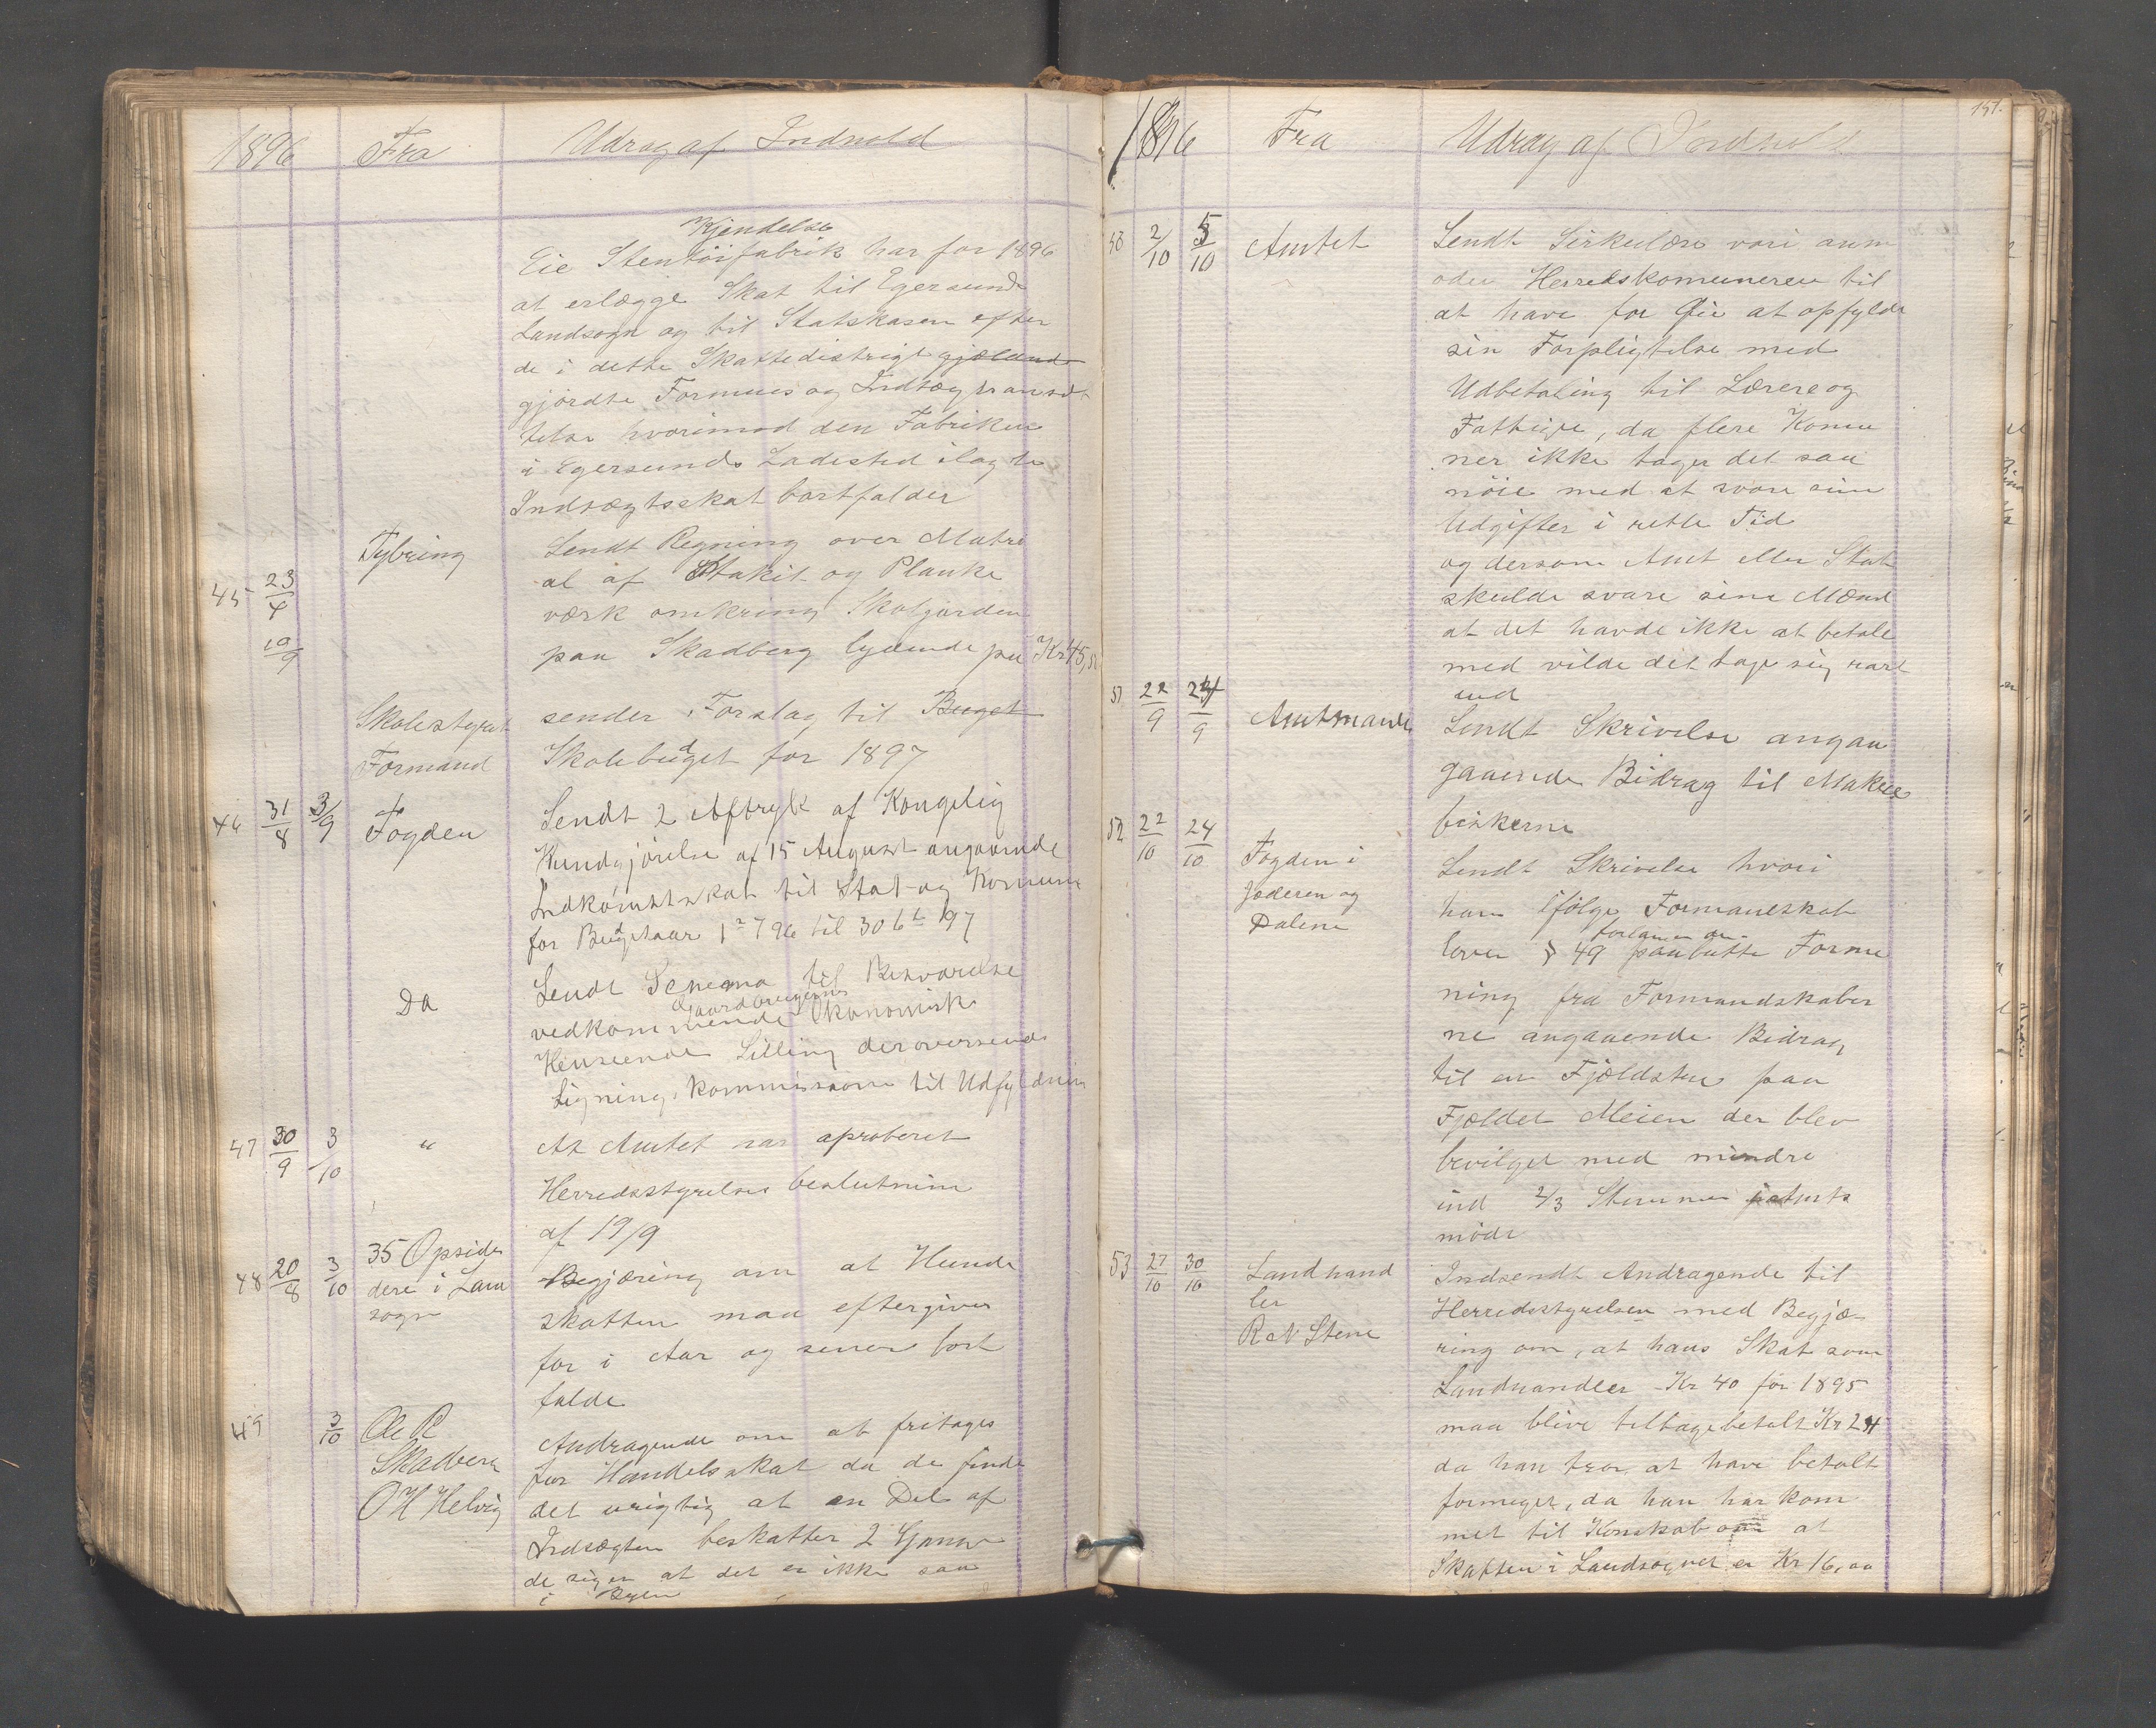 1896 Fra Udrag af Indhold
Kjendelse
Eie Stentöifabrik har for 1896
at erlægge Skat til Egersunds
Landsogn og til Statskasen efter
de i dette Skattedistrigt gjældende
gjordte Formues og Indtægtsansæt
telse hvorimod den Fabriken
i Egersunds Ladested ilagte
Indtægtsskat bortfalder
45 23/4 Tybring Sendt Regning over Matri
al af Stakit og Planke
værk omkring Skolgården
19/9 paa Skadberg lydende på Kr 45,
Skolestyret sender Forslag til Buget
Formand Skolebudget for 1897
46 31/8 3/9 Fogden Sendt 2 Aftryk af Kongelig
Kundgjörelse af 15 August angaaende
Indkomstskat til Stat og Komune
for Budgetaar 1 7 96 til 30 6 97
Da Sendt Schema til Besvarelse
Gaardbrugernes
vedkommende Økonomisk
Henseende Stilling der oversendes
Ligningskommissionen til Udfyldning
47 30/9 3/10 " At Amtet har aproberet
Herredsstyrelses beslutning
af 19/9
48 20/8 3/10 35 Opsid
dere i Land
sogn
Begjæring om at Hunde
skatten maa eftergives
for i Aar og senere bort
falde
49 3/10 Ole P.
Skadberg
O H Helvig
Andragende om at fritages
for Handelsskat da de finde
det urigtig at en Del af
Indtægten beskattes 2 Gange
de siger at det er ikke saa
i Byen
1896 Fra Udrag af Indhold 151.
50 2/10 5/10 Amtet Sendt Sirkulære vori anm
oder Herredskomuneren til
at have for Øie at opfylde
sin Forpligtelse med
Udbetaling til Lærere og
Fattige, da flere Komu
ner ikke tager det saa
nöie med at svare sine
Udgifter i rette Tid
og dersom Amt eller Stat
skulde svare sine Mænd
at det havde ikke at betale
med vilde det tage sig rart
ud
51 22/9 24/9 Amtmanden Sendt Skrivelse angaa
gaaende Bidrag til Makrel
fiskerne
52 22/10 24/10 Fogden i
Jæderen og
Dalene
Sendt Skrivelse hvori
han ifölge Formandskab
forlanger
loven § 49 Forme
ning fra Formandskaber
ne angaaende Bidrag
til en Fjeldstue paa
Fjeldet Meien der blev
bevilget med mindre
ind 2/3 Stemmer
möde
53 27/10 30/10 Landhand
ler
R N Stene
Indsendt Andragende til
Herredsstyrelsen med Begjæ-
ring om, at hans Skat som
Landhandler Kr 40 for 1895
maa blive tilbagebetalt Kr 24
da han tror at have betalt
formeget, da han har kom
met til Konskab om at
Skatten i Landsognet er Kr 16,00